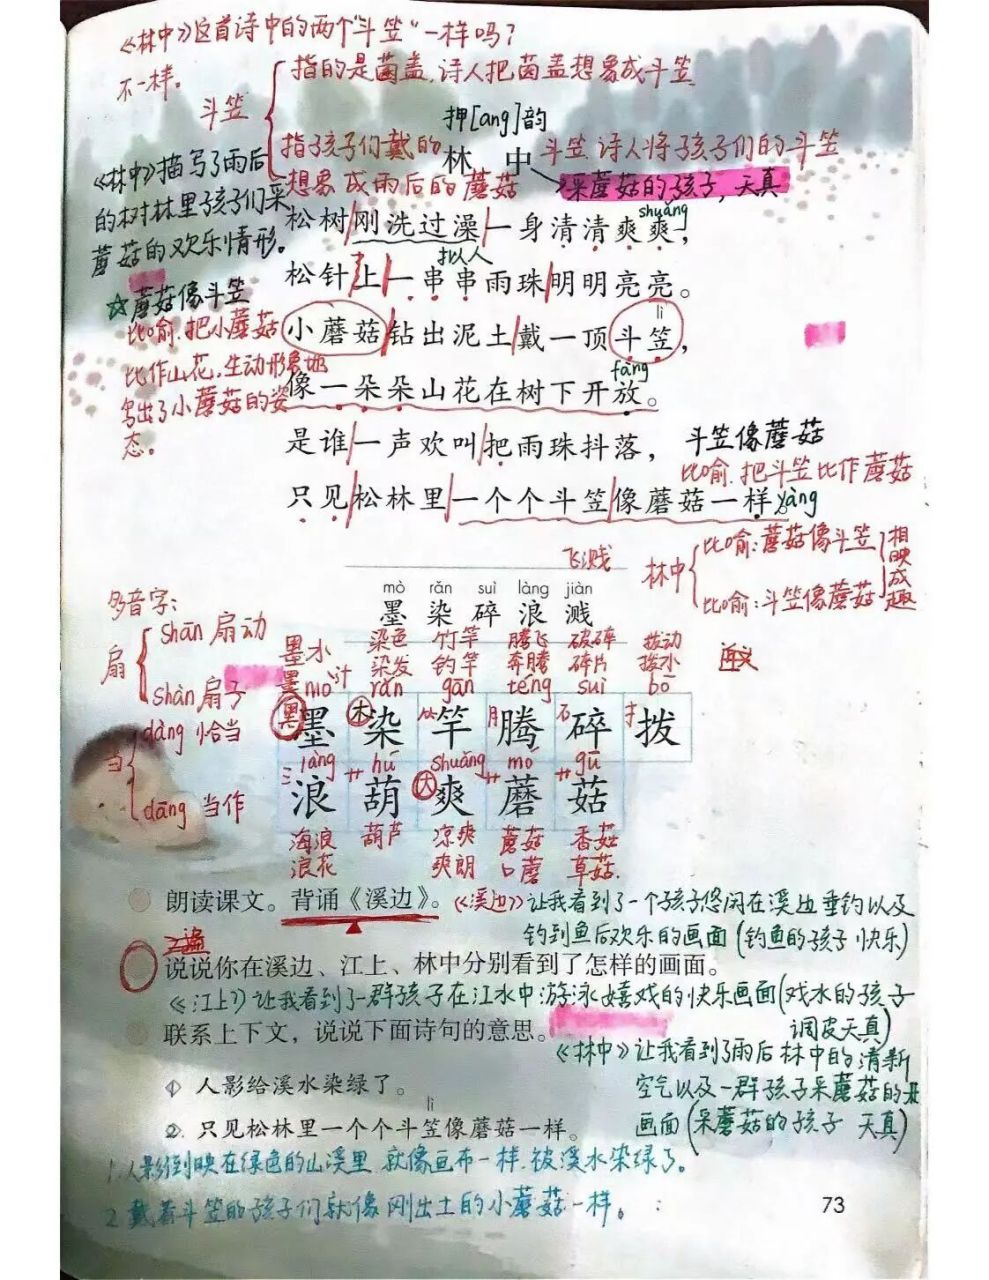 《林中》这首诗中的两个"斗笠"一样吗?
不一样。
斗笠
指的是菌盖,诗人把菌盖想象成斗笠
押[ang]韵
指孩子们戴的
斗笠 诗人将孩子们的斗笠
想象成雨后的蘑菇
林 中
采蘑菇的孩子,天真
《林中》描写了雨后
的树林里孩子们采
蘑菇的欢乐情形。
shuǎng
松树刚洗过澡一身清清爽爽,
拟人
松针上一串串雨珠明明亮亮。
☆蘑菇像斗笠
lì
小蘑菇钻出泥土戴一顶斗笠,
比喻.把小蘑菇
比作山花,生动形象地
写出了小蘑菇的姿
态。
fàng
像一朵朵山花在树下开放。
是谁一声欢叫把雨珠抖落,
斗笠像蘑菇
比喻.把斗笠比作蘑菇
只见松林里一个个斗笠像蘑菇一样 yàng
林中
比喻:蘑菇像斗笠
比喻:斗笠像蘑菇
相映成趣
飞溅
mò rǎn suì làng jiàn
墨 染 碎 浪 溅
多音字:
扇
shān 扇动
shàn 扇子
当
dàng 恰当
dāng 当作
墨水 染色 竹竿 腾飞 破碎 拨动
墨汁 染发 钓竿 奔腾 碎片 拨水
mò rǎn gān téng suì bō
黑 木 月 石 扌
墨 染 竿 腾 碎 拨
làng hú shuǎng mó gū
氵 艹 大 艹 艹
浪 葫 爽 蘑 菇
海浪 葫芦 凉爽 蘑菇 香菇
浪花 爽朗 口蘑 草菇.
朗读课文。背诵《溪边》。
《溪边》让我看到了一个孩子悠闲在溪边垂钓以及
钓到鱼后欢乐的画面(钓鱼的孩子 快乐)
说说你在溪边、江上、林中分别看到了怎样的画面。
《江上》让我看到了一群孩子在江水中游泳嬉戏的快乐画面(戏水的孩子
调皮天真)
联系上下文,说说下面诗句的意思。
《林中》让我看到了雨后林中的清新
空气以及一群孩子采蘑菇的
画面(采蘑菇的孩子 天真)
① 人影给溪水染绿了。
lì
② 只见松林里一个个斗笠像蘑菇一样。
1.人影倒映在绿色的山溪里 就像画布一样.被溪水染绿了。
2.戴着斗笠的孩子们就像刚出土的小蘑菇一样。
73